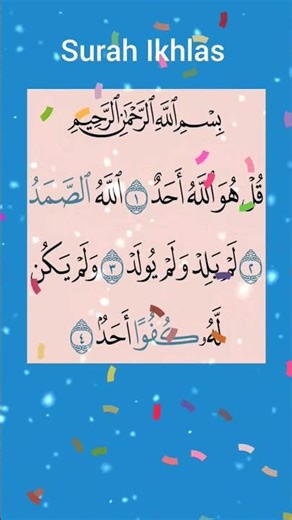 Surah Ikhlas
بِسْمِ اللَّهِ الرَّحْمَٰنِ الرَّحِيمِ
قُلْ هُوَ اللَّهُ أَحَدٌ ١ اللَّهُ الصَّمَدُ
٢ لَمْ يَلِدْ وَلَمْ يُولَدْ ٣ وَلَمْ يَكُن
لَّهُۥ كُفُوًا أَحَدٌۢ ٤